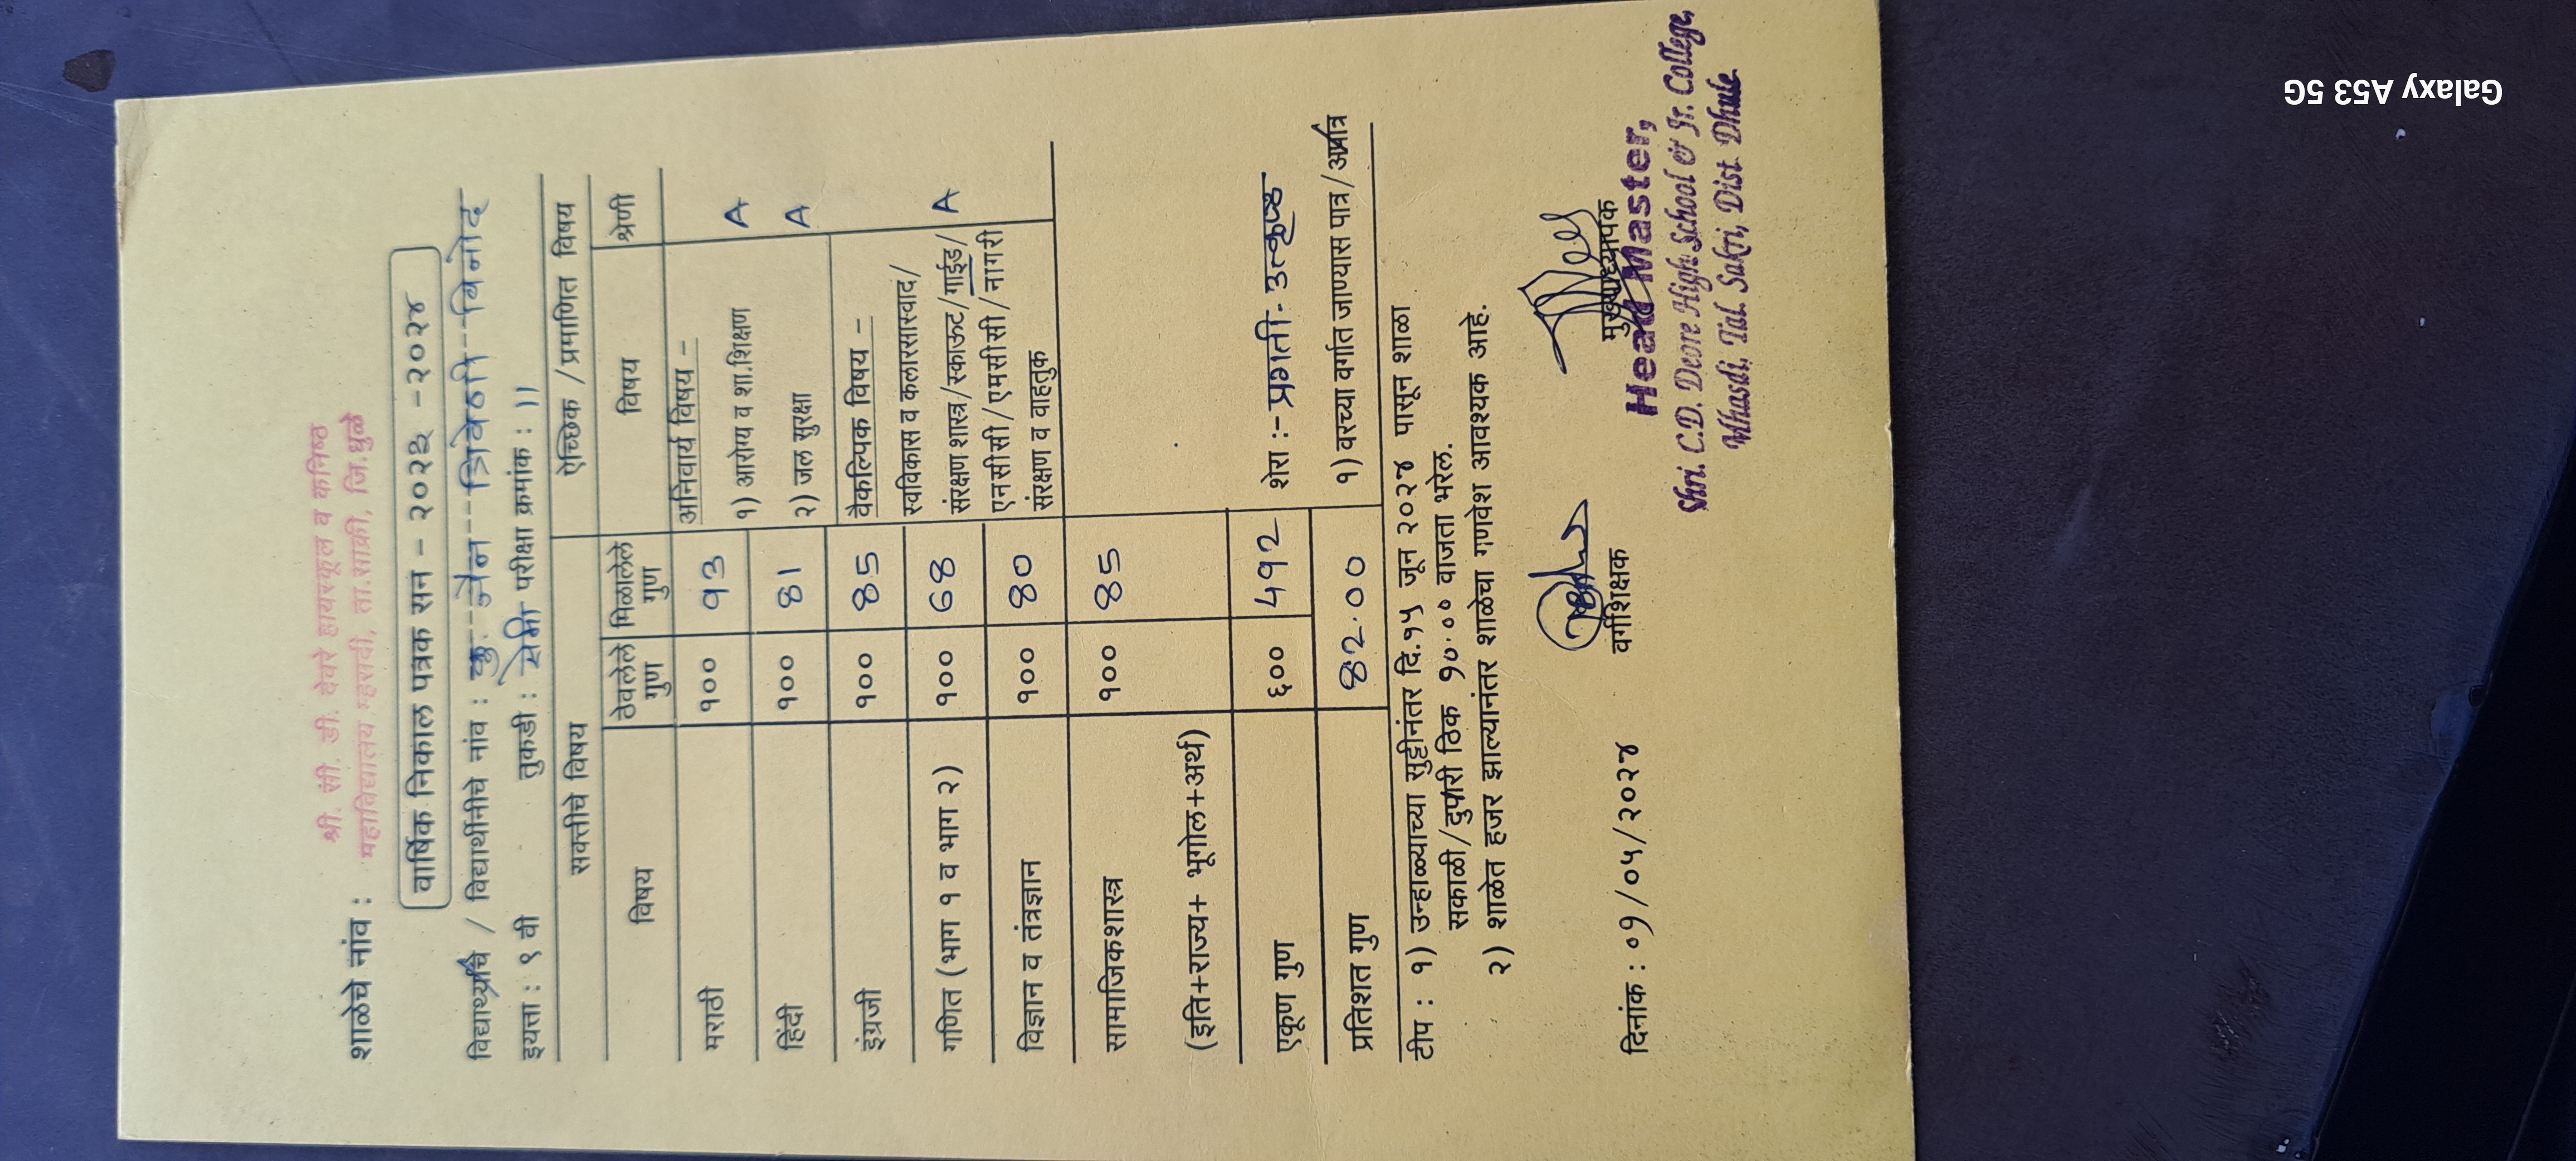 श्री. सी. डी. देवरे हायस्कूल व कनिष्ठ
शाळेचे नांव : महाविद्यालय म्हसदी, ता.साक्री, जि.धुळे
वार्षिक निकाल पत्रक सन - २०२३ - २०२४
विद्यार्थ्याचे / विद्यार्थीनीचे नांव : कु. जैन त्रिवेठी विनोद
इयत्ता : ९ वी तुकडी : सेमी परीक्षा क्रमांक : 11
सक्तीचे विषय ऐच्छिक / प्रमाणित विषय
विषय ठेवलेले गुण मिळालेले गुण विषय श्रेणी
मराठी १०० 93 अनिवार्य विषय -
१) आरोग्य व शा.शिक्षण A
हिंदी १०० 81 २) जल सुरक्षा A
इंग्रजी १०० 85 वैकल्पिक विषय -
स्वविकास व कलारसास्वाद/
गणित (भाग १ व भाग २) १०० 68 संरक्षण शास्त्र/स्काऊट/गाईड/ A
एनसीसी/एमसीसी/नागरी
विज्ञान व तंत्रज्ञान १०० 80 संरक्षण व वाहतुक
सामाजिकशास्त्र १०० 85
(इति+राज्य+ भूगोल+अर्थ)
एकूण गुण ६०० 492 शेरा :- प्रगती:- उत्कृष्ठ
प्रतिशत गुण 82.00 १) वरच्या वर्गात जाण्यास पात्र/अपात्र
टीप : १) उन्हाळ्याच्या सुट्टीनंतर दि.१५ जून २०२४ पासून शाळा
सकाळी/दुपारी ठिक १०.०० वाजता भरेल.
२) शाळेत हजर झाल्यानंतर शाळेचा गणवेश आवश्यक आहे.
दिनांक : ०१/०५/२०२४ वर्गशिक्षक मुख्याध्यापक
Head Master,
Shri. C.D. Deore High School & Jr. College,
Mhasdi, Tal. Sakri, Dist. Dhule
Galaxy A53 5G